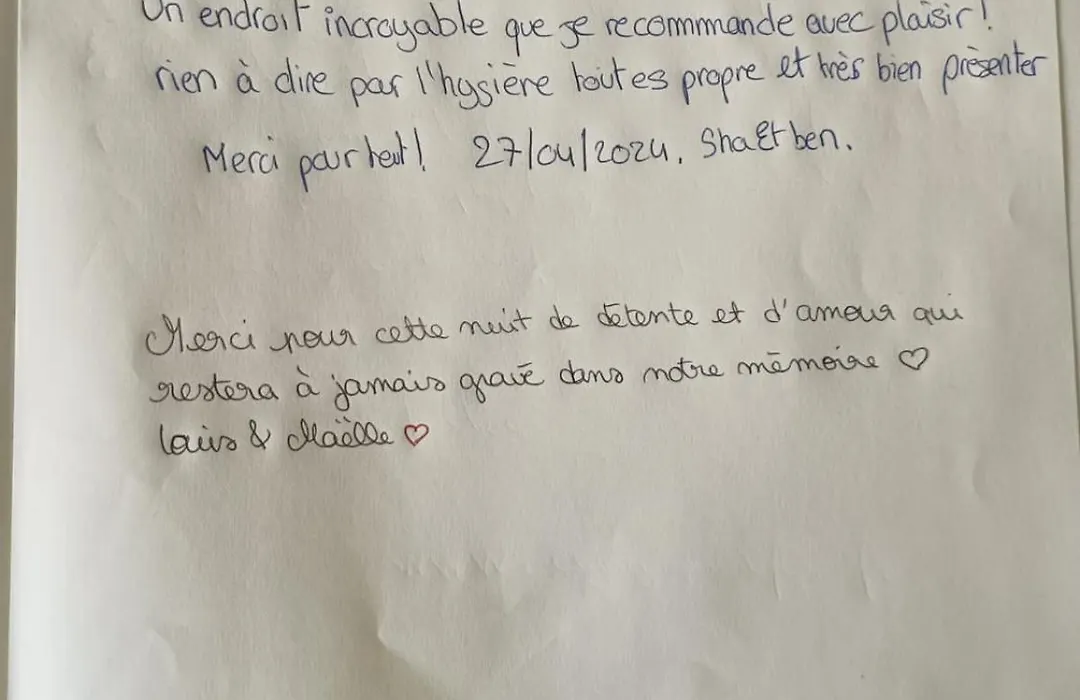 Un endroit incroyable que je recommmande avec plaisir !
rien à dire par l'hygiène toutes propre et très bien présenter
Merci pour tout ! 27/04/2024. Sha Et ben.
Merci pour cette nuit de détente et d'amour qui
restera à jamais gravé dans notre mémoire ♡
& Maëlle ♡